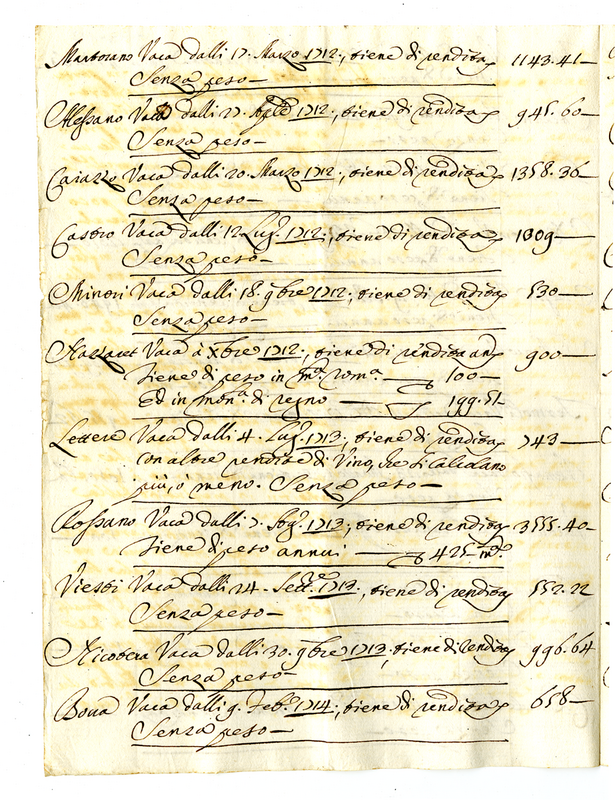 Martorano Vaca dalli 17. Marzo 1712., tiene di rendita 1143.41—
Senza peso—
Alessano Vaca dalli 27. 1712., tiene di rendita 945.60—
Senza peso—
Caiazzo Vaca dalli 20. Marzo 1712., tiene di rendita 1358.36—
Senza peso—
Castro Vaca dalli 12 Lugº. 1712., tiene di rendita 1009—
Senza peso—
Minori Vaca dalli 18. 9bre 1712., tiene di rendita 530—
Senza peso—
Nazzaret Vaca à Xbre 1712., tiene di rendita an 900—
tiene di peso in mª. romª.— 100—
Ed in monª. di regno — 199.51
Lettere Vaca dalli 4. Lugº. 1713., tiene di rendita 743—
con altre rendite di Vino, che si calcolano
più, ò meno. Senza peso—
Rossano Vaca dalli 7. 1713., tiene di rendita 3555.40—
tiene di peso annui — 425. mª.
Viesti Vaca dalli 24. Sett.e 1713., tiene di rendita 552.22
Senza peso—
Nicotera Vaca dalli 30. 9bre 1713, tiene di rendita 996.64
Senza peso—
Boua Vaca dalli 9. Febº. 1714., tiene di rendita 658—
Senza peso—